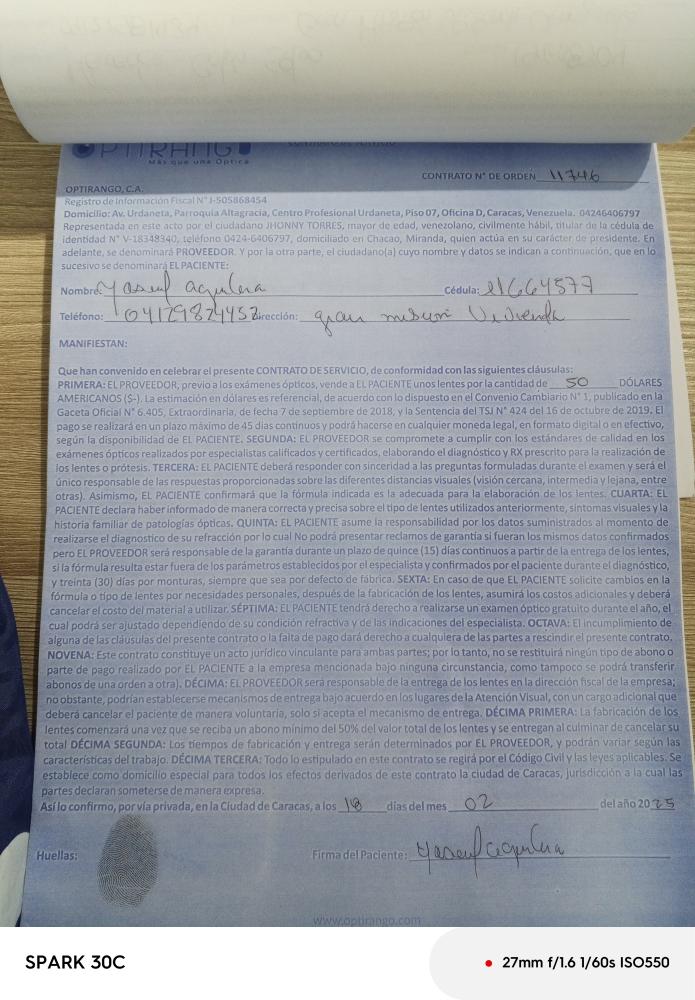 OPTIRANGO
Más que una Óptica
CONTRATO N° DE ORDEN 11746
OPTIRANGO, C.A.
Registro de Información Fiscal N° J-505868454
Domicilio: Av. Urdaneta, Parroquia Altagracia, Centro Profesional Urdaneta, Piso 07, Oficina D, Caracas, Venezuela. 04246406797
Representada en este acto por el ciudadano JHONNY TORRES, mayor de edad, venezolano, civilmente hábil, titular de la cédula de
identidad N° V-18348340, teléfono 0424-6406797, domiciliado en Chacao, Miranda, quien actúa en su carácter de presidente. En
adelante, se denominará PROVEEDOR. Y por la otra parte, el ciudadano(a) cuyo nombre y datos se indican a continuación, que en lo
sucesivo se denominará EL PACIENTE:
Nombre: Yasenf aguilera Cédula: 11664577
Teléfono: 04129824452 Dirección: gran mision Vivienda
MANIFIESTAN:
Que han convenido en celebrar el presente CONTRATO DE SERVICIO, de conformidad con las siguientes cláusulas:
PRIMERA: EL PROVEEDOR, previo a los exámenes ópticos, vende a EL PACIENTE unos lentes por la cantidad de 50 DÓLARES
AMERICANOS ($-). La estimación en dólares es referencial, de acuerdo con lo dispuesto en el Convenio Cambiario N° 1, publicado en la
Gaceta Oficial N° 6.405, Extraordinaria, de fecha 7 de septiembre de 2018, y la Sentencia del TSJ N° 424 del 16 de octubre de 2019. El
pago se realizará en un plazo máximo de 45 días continuos y podrá hacerse en cualquier moneda legal, en formato digital o en efectivo,
según la disponibilidad de EL PACIENTE. SEGUNDA: EL PROVEEDOR se compromete a cumplir con los estándares de calidad en los
exámenes ópticos realizados por especialistas calificados y certificados, elaborando el diagnóstico y RX prescrito para la realización de
los lentes o prótesis. TERCERA: EL PACIENTE deberá responder con sinceridad a las preguntas formuladas durante el examen y será el
único responsable de las respuestas proporcionadas sobre las diferentes distancias visuales (visión cercana, intermedia y lejana, entre
otras). Asimismo, EL PACIENTE confirmará que la fórmula indicada es la adecuada para la elaboración de los lentes. CUARTA: EL
PACIENTE declara haber informado de manera correcta y precisa sobre el tipo de lentes utilizados anteriormente, síntomas visuales y la
historia familiar de patologías ópticas. QUINTA: EL PACIENTE asume la responsabilidad por los datos suministrados al momento de
realizarse el diagnostico de su refracción por lo cual No podrá presentar reclamos de garantía si fueran los mismos datos confirmados
pero EL PROVEEDOR será responsable de la garantía durante un plazo de quince (15) días continuos a partir de la entrega de los lentes,
si la fórmula resulta estar fuera de los parámetros establecidos por el especialista y confirmados por el paciente durante el diagnóstico,
y treinta (30) días por monturas, siempre que sea por defecto de fábrica. SEXTA: En caso de que EL PACIENTE solicite cambios en la
fórmula o tipo de lentes por necesidades personales, después de la fabricación de los lentes, asumirá los costos adicionales y deberá
cancelar el costo del material a utilizar. SÉPTIMA: EL PACIENTE tendrá derecho a realizarse un examen óptico gratuito durante el año, el
cual podrá ser ajustado dependiendo de su condición refractiva y de las indicaciones del especialista. OCTAVA: El incumplimiento de
alguna de las cláusulas del presente contrato o la falta de pago dará derecho a cualquiera de las partes a rescindir el presente contrato.
NOVENA: Este contrato constituye un acto jurídico vinculante para ambas partes; por lo tanto, no se restituirá ningún tipo de abono o
parte de pago realizado por EL PACIENTE a la empresa mencionada bajo ninguna circunstancia, como tampoco se podrá transferir
abonos de una orden a otra). DÉCIMA: EL PROVEEDOR será responsable de la entrega de los lentes en la dirección fiscal de la empresa;
no obstante, podrían establecerse mecanismos de entrega bajo acuerdo en los lugares de la Atención Visual, con un cargo adicional que
deberá cancelar el paciente de manera voluntaria, solo si acepta el mecanismo de entrega. DÉCIMA PRIMERA: La fabricación de los
lentes comenzará una vez que se reciba un abono mínimo del 50% del valor total de los lentes y se entregan al culminar de cancelar su
total DÉCIMA SEGUNDA: Los tiempos de fabricación y entrega serán determinados por EL PROVEEDOR, y podrán variar según las
características del trabajo. DÉCIMA TERCERA: Todo lo estipulado en este contrato se regirá por el Código Civil y las leyes aplicables. Se
establece como domicilio especial para todos los efectos derivados de este contrato la ciudad de Caracas, jurisdicción a la cual las
partes declaran someterse de manera expresa.
Así lo confirmo, por vía privada, en la Ciudad de Caracas, a los 18 días del mes 02 del año 2025
Huellas: Firma del Paciente: Yasenf aguilera
www.optirango.com
SPARK 30C
27mm f/1.6 1/60s ISO550